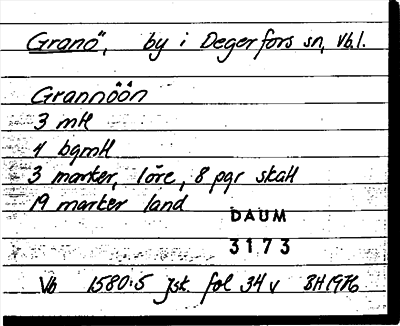 Granö, by i Degerfors sn, Vb.l.
Grannöön
3 mtl
4 bgmtl
3 marker, 1 öre, 8 pgr skatt
19 marker land
DAUM
3173
Vb 1580:5 Jsk. fol 34 v BH 1976